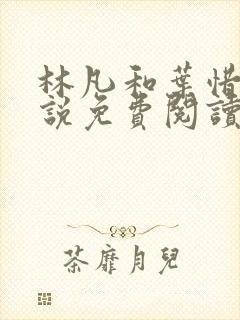 林凡和葉惜
說免費閱讀
茶靡月兒